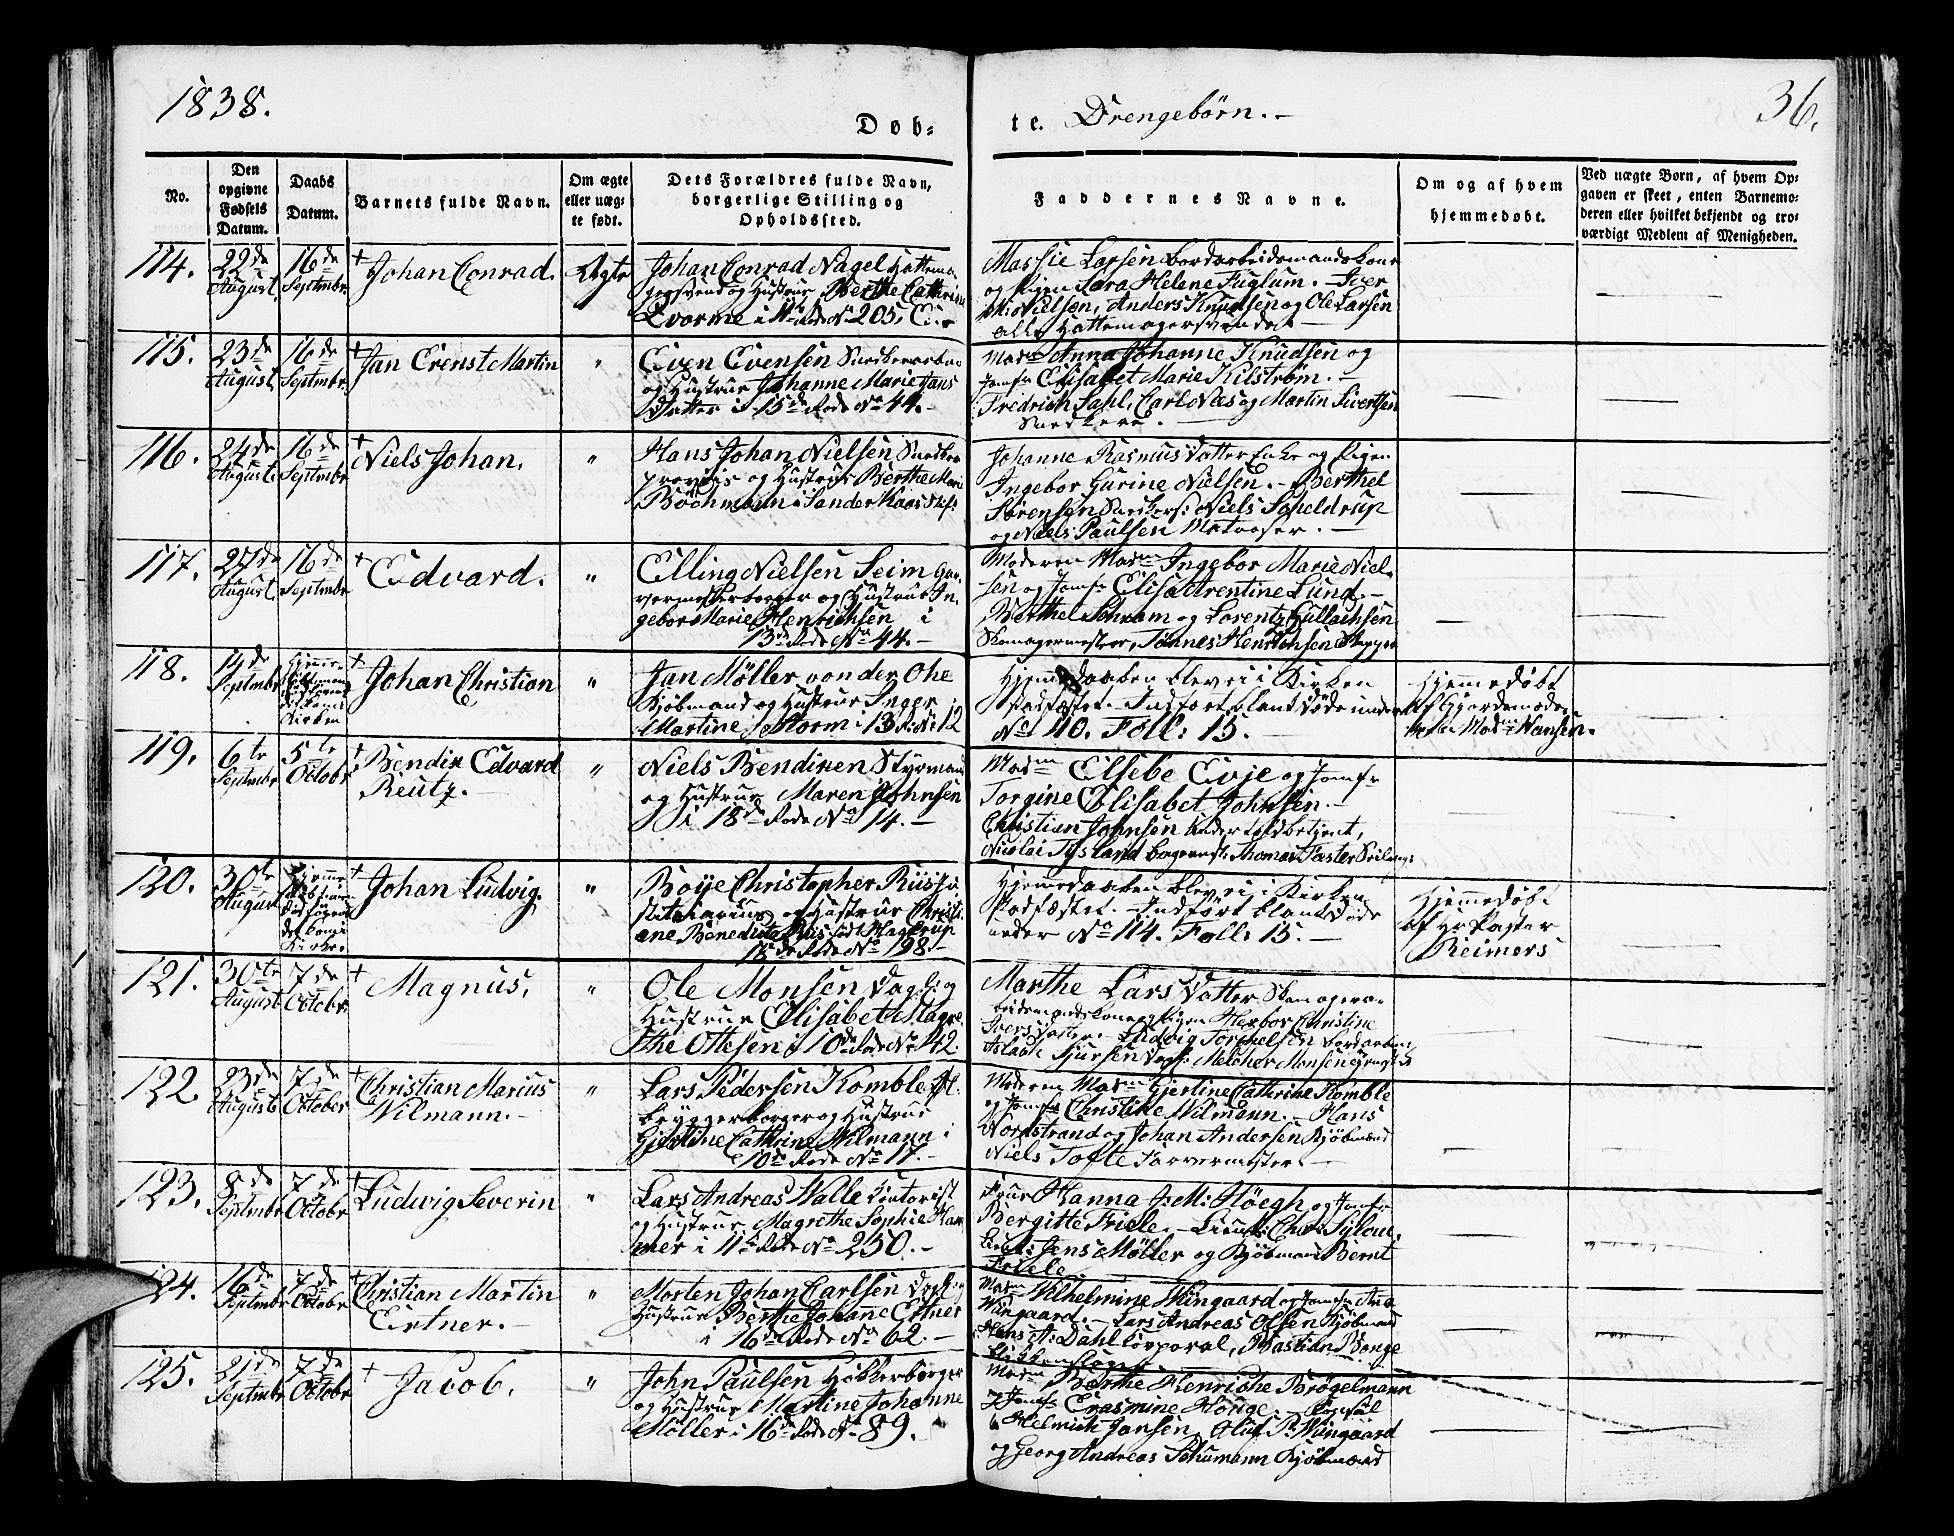 1838.
Døb-
te. Drengebørn.-
36.
No.
Den opgivne Fødsels Datum.
Daabs Datum.
Barnets fulde Navn.
Om ægte eller uægte født.
Dets Forældres fulde Navn, borgerlige Stilling og Opholdssted.
Faddernes Navne.
Om og af hvem hjemmedøbt.
Ved uægte Børn, af hvem Opgaven er skeet, enten Barnemoderen eller hvilket bekjendt og troværdigt Medlem af Menigheden.
114.
22de August.
16de Septmbr.
+ Johan Conrad.
Ægte
Johan Conrad Nagel Hattema-
gersvend og Hustrue Berthe Cathrine
i 11te Rode No 205.
Larsen Bordarbeidsmandskone
og Pigen Sara Helene Fuglum. - Iver
Nielsen, Anders Knudsen og Ole Larsen
alle Hattemagersvende. -
115.
23de August.
16de Septmbr.
+ Jan Erenst Martin
"
Even Evensen
og Hustrue Johanne Marie Jans
Datter i 15de Rode No 44. -
Madm Anna Johanne Knudsen og
Jomfr Elisabet Marie Kilstrøm. -
Fredrich Sahl, Carl Næs og Martin Sivertsen
Snedkere. -
116.
24de August.
16de Septmbr.
+ Niels Johan.
"
Hans Johan Nielsen Snedker
og Hustrue Berthe Marie
Bochmann i
Johanne Rasmusdatter Enke og Pigen
Ingebor Gurine Nielsen. - Berthel
Sørensen Snedkers: Niels Scheldrup
og Niels Paulsen Matroser. -
117.
27de August.
16de Septmbr
+ Edvard.
"
Elling Nielsen Seim Gar-
vermesterborger og Hustrue In-
gebor Marie Henrichsen i
13de Rode No 44. -
Moderen Madm Ingebor Marie Niel-
sen og Jomfr Elisa Arentine Lund. -
Berthel Schram og Lorentz Gullachsen
Skomagermestere, Tønnes Henrichsen
118.
14de Septmbr
Kirken
+ Johan Christian
"
Jan Møller von der Ohe
Kjøbmand og Hustrue Inger
Martine Storm i 13 R: No 12
Hjemdaaben blev ei i Kirken
stadfæstet. Indført blant Døde under
No 110. Foll: 15. -
Hjemmedøbt
af Gjordemode-
Madm Hansen.
119.
6te Septmbr
5te Octobr
+ Bendix Edvard
Reutz. -
"
Niels Bendixen Styrmand
og Hustrue Maren Johnsen
i 18de Rode No 14. -
Madm Elsebe Evje og Jomfr
Torgine Elisabet Johnsen. -
Christian Johnsen Undertoldbetjent,
Nicolai Tysland Borgermst: Thomas Faster
120.
30te August
+ Johan Ludvig.
"
Boye Christopher Riis
og Hustrue Christi-
ane Benedicte Riis født Hagerup
Rode No 198. -
Hjemmedaaben blev ei i Kirken
Stadfæstet. - Indført blant Døde
under No 114. Foll: 15. -
Hjemmedøbt
af Hr Pastor
Reimers
121.
30te August.
7de Octobr
+ Magnus.
"
Ole Monsen Dagl: og
Hustrue Elisabet Magre-
the Ottesen i 10de Rode No 142.
Marthe Larsdatter
Christine
Iversdatter - Ludvig Torchelsen Bordarbm:
Aslach Sjursen Dagl: Melchior Monsen
122.
23de August.
7de October
+ Christian Marius
Wilmann. -
"
Lars Pedersen Komble
Bryggerborger og Hustrue
Gjertine Cathrine Wilmann i
10de Rode No 17. -
Moderen Madm Gjertine Cathrine Komble
og Jomfr Christine Wilmann. - Hans
Nordstrand og Johan Andersen Kjøbmænd
Niels Tofte Farvermester -
123.
8de Septmbr
7de Octobr
+ Ludvig Severin
"
Lars Andreas Walle
og Hustrue Magrethe Sophie Ham-
mer i 11te Rode No 250. -
Frue Hanna J: M: Høegh og Jomfr
Bergitte Friele. - Lieut: Chr: Sylow,
Lieut: Jens Møller og Kjøbmand Bernt
Friele
124.
16de Septmbr
7de Octobr
+ Christian Martin
Eitner. -
"
Morten Johan Carlsen Dagl: og
Hustrue Berthe Johane Eitner
i 16de Rode No 62. -
Madm Wilhelmine Wingaard og Jomfr Ane
Wingaard. - Lars Andreas Olsen Kjøbmand
Hans A: Dahl Corporal, Bastian Bonge
Blikkenslager
125.
21de Septmbr
7de Octobr
+ Jacob.
"
John Paulsen Høkkerborger
og Hustrue Martine Johanne
Møller i 16de Rode No 89.
Madm Berthe Henriche Brøgelmann
Jomfr Erasmine Houge. -
Helmich Jansen, Oluf P: Wingaard
og Georg Andreas Schumann Kjøbmænd